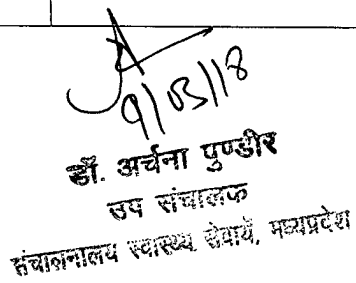 9/03/18
डॉ. अर्चना पुण्डीर
उप संचालक
संचालनालय स्वास्थ्य सेवायें, मध्यप्रदेश